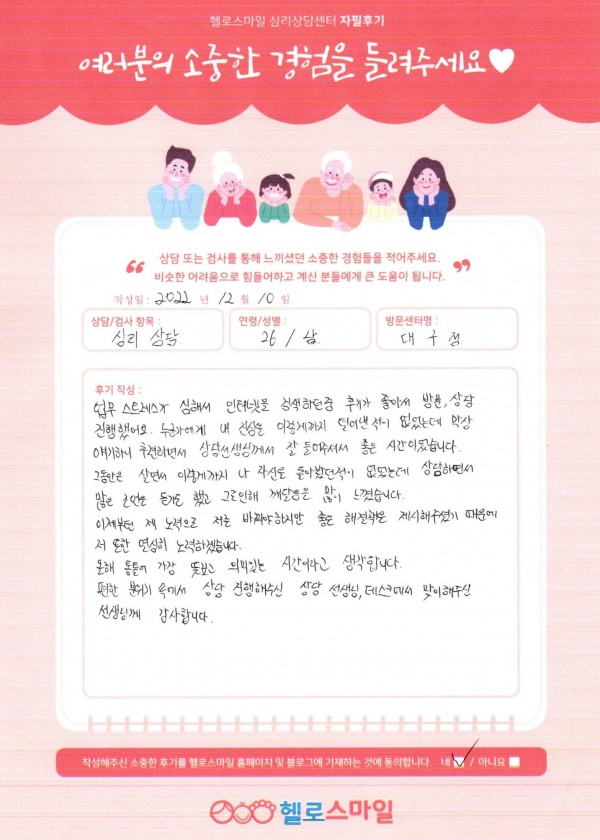 헬로스마일 심리상담센터 자필후기
여러분의 소중한 경험을 들려주세요
상담 또는 검사를 통해 느끼셨던 소중한 경험들을 적어주세요.
비슷한 어려움으로 힘들어하고 계신 분들에게 큰 도움이 됩니다.
작성일 : 2022 년 12 월 10 일
상담/검사 항목 :
심리 상담
연령/성별 :
26 / 남
방문센터명 :
대구점
후기 작성 :
업무 스트레스가 심해서 인터넷을 검색하던중 후기가 좋아서 방문, 상담
진행했어요. 누군가에게 내 진심을 이렇게까지 털어낸적이 없었는데 막상
얘기하니 후련하면서 상담선생님께서 잘 들어주셔서 좋은 시간이었습니다.
그동안은 살면서 이렇게까지 나 자신을 돌아봤던적이 없었는데 상담하면서
많은 고민을 하기도 했고 그로인해 깨달음을 많이 느꼈습니다.
이제부턴 제 노력으로 저를 바꿔야하지만 좋은 해결책을 제시해주셨기 때문에
저 또한 열심히 노력하겠습니다.
올해 통틀어 가장 뜻깊고 의미있는 시간이라고 생각합니다.
편한 분위기 속에서 상담 진행해주신 상담 선생님, 데스크에서 맞이해주신
선생님께 감사합니다.
작성해주신 소중한 후기를 헬로스마일 홈페이지 및 블로그에 기재하는 것에 동의합니다. 네 / 아니요
헬로스마일